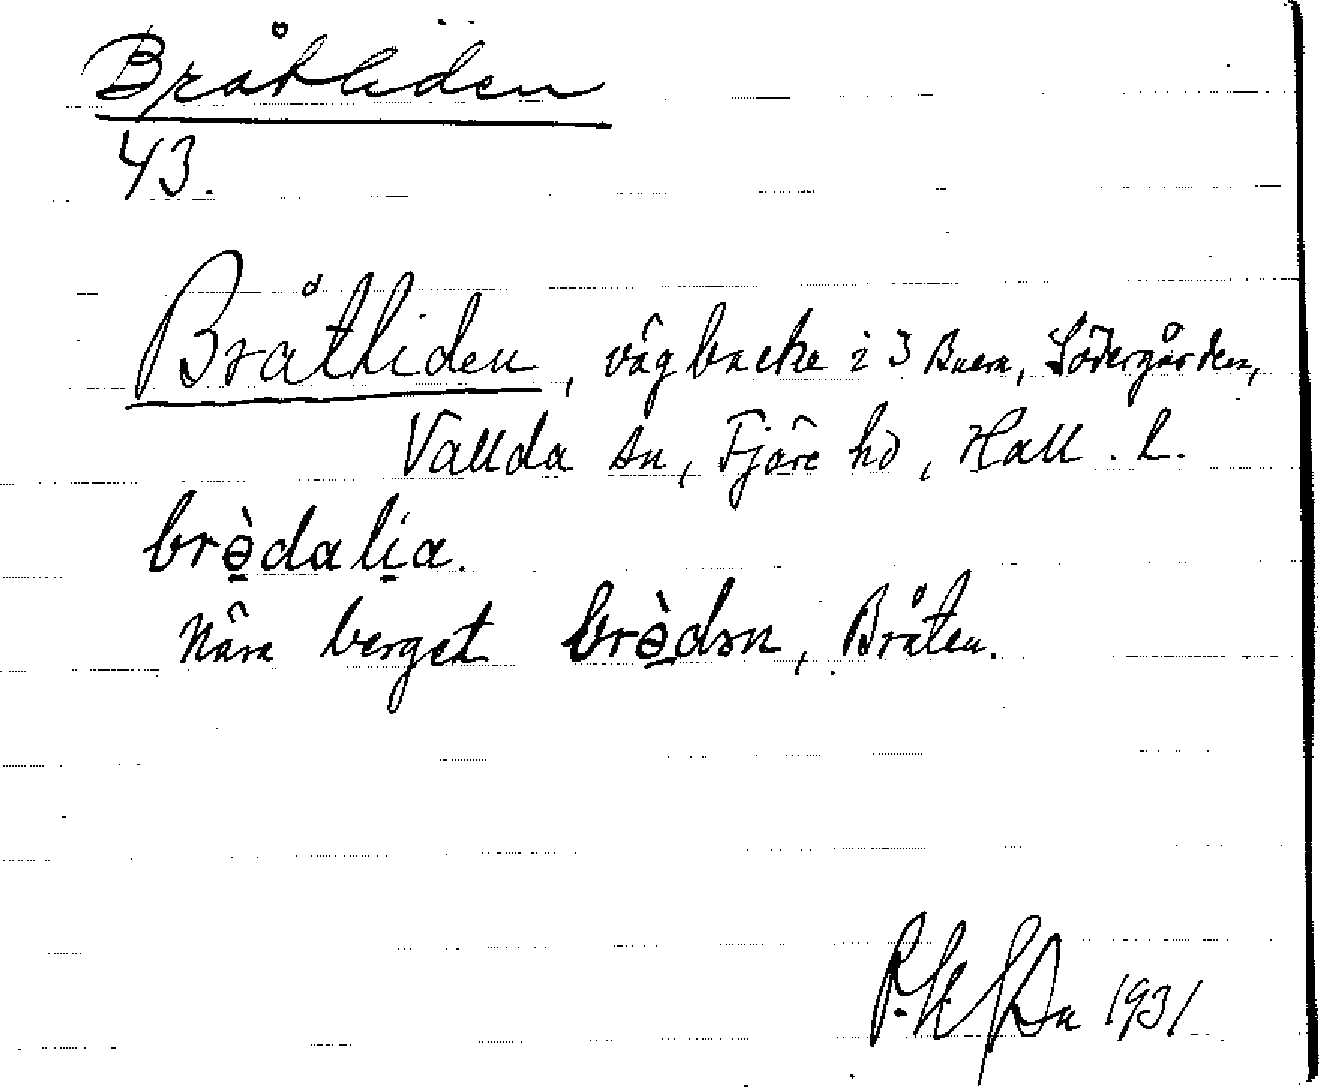 Bråtliden
43.
Bråtliden, vägbacke i 3 Buera, Södergården,
Vallda sn, Fjäre hd, Hall. l.
brə̠̀dali̠a.
Nära berget brə̠̀dən, Bråten.
1931